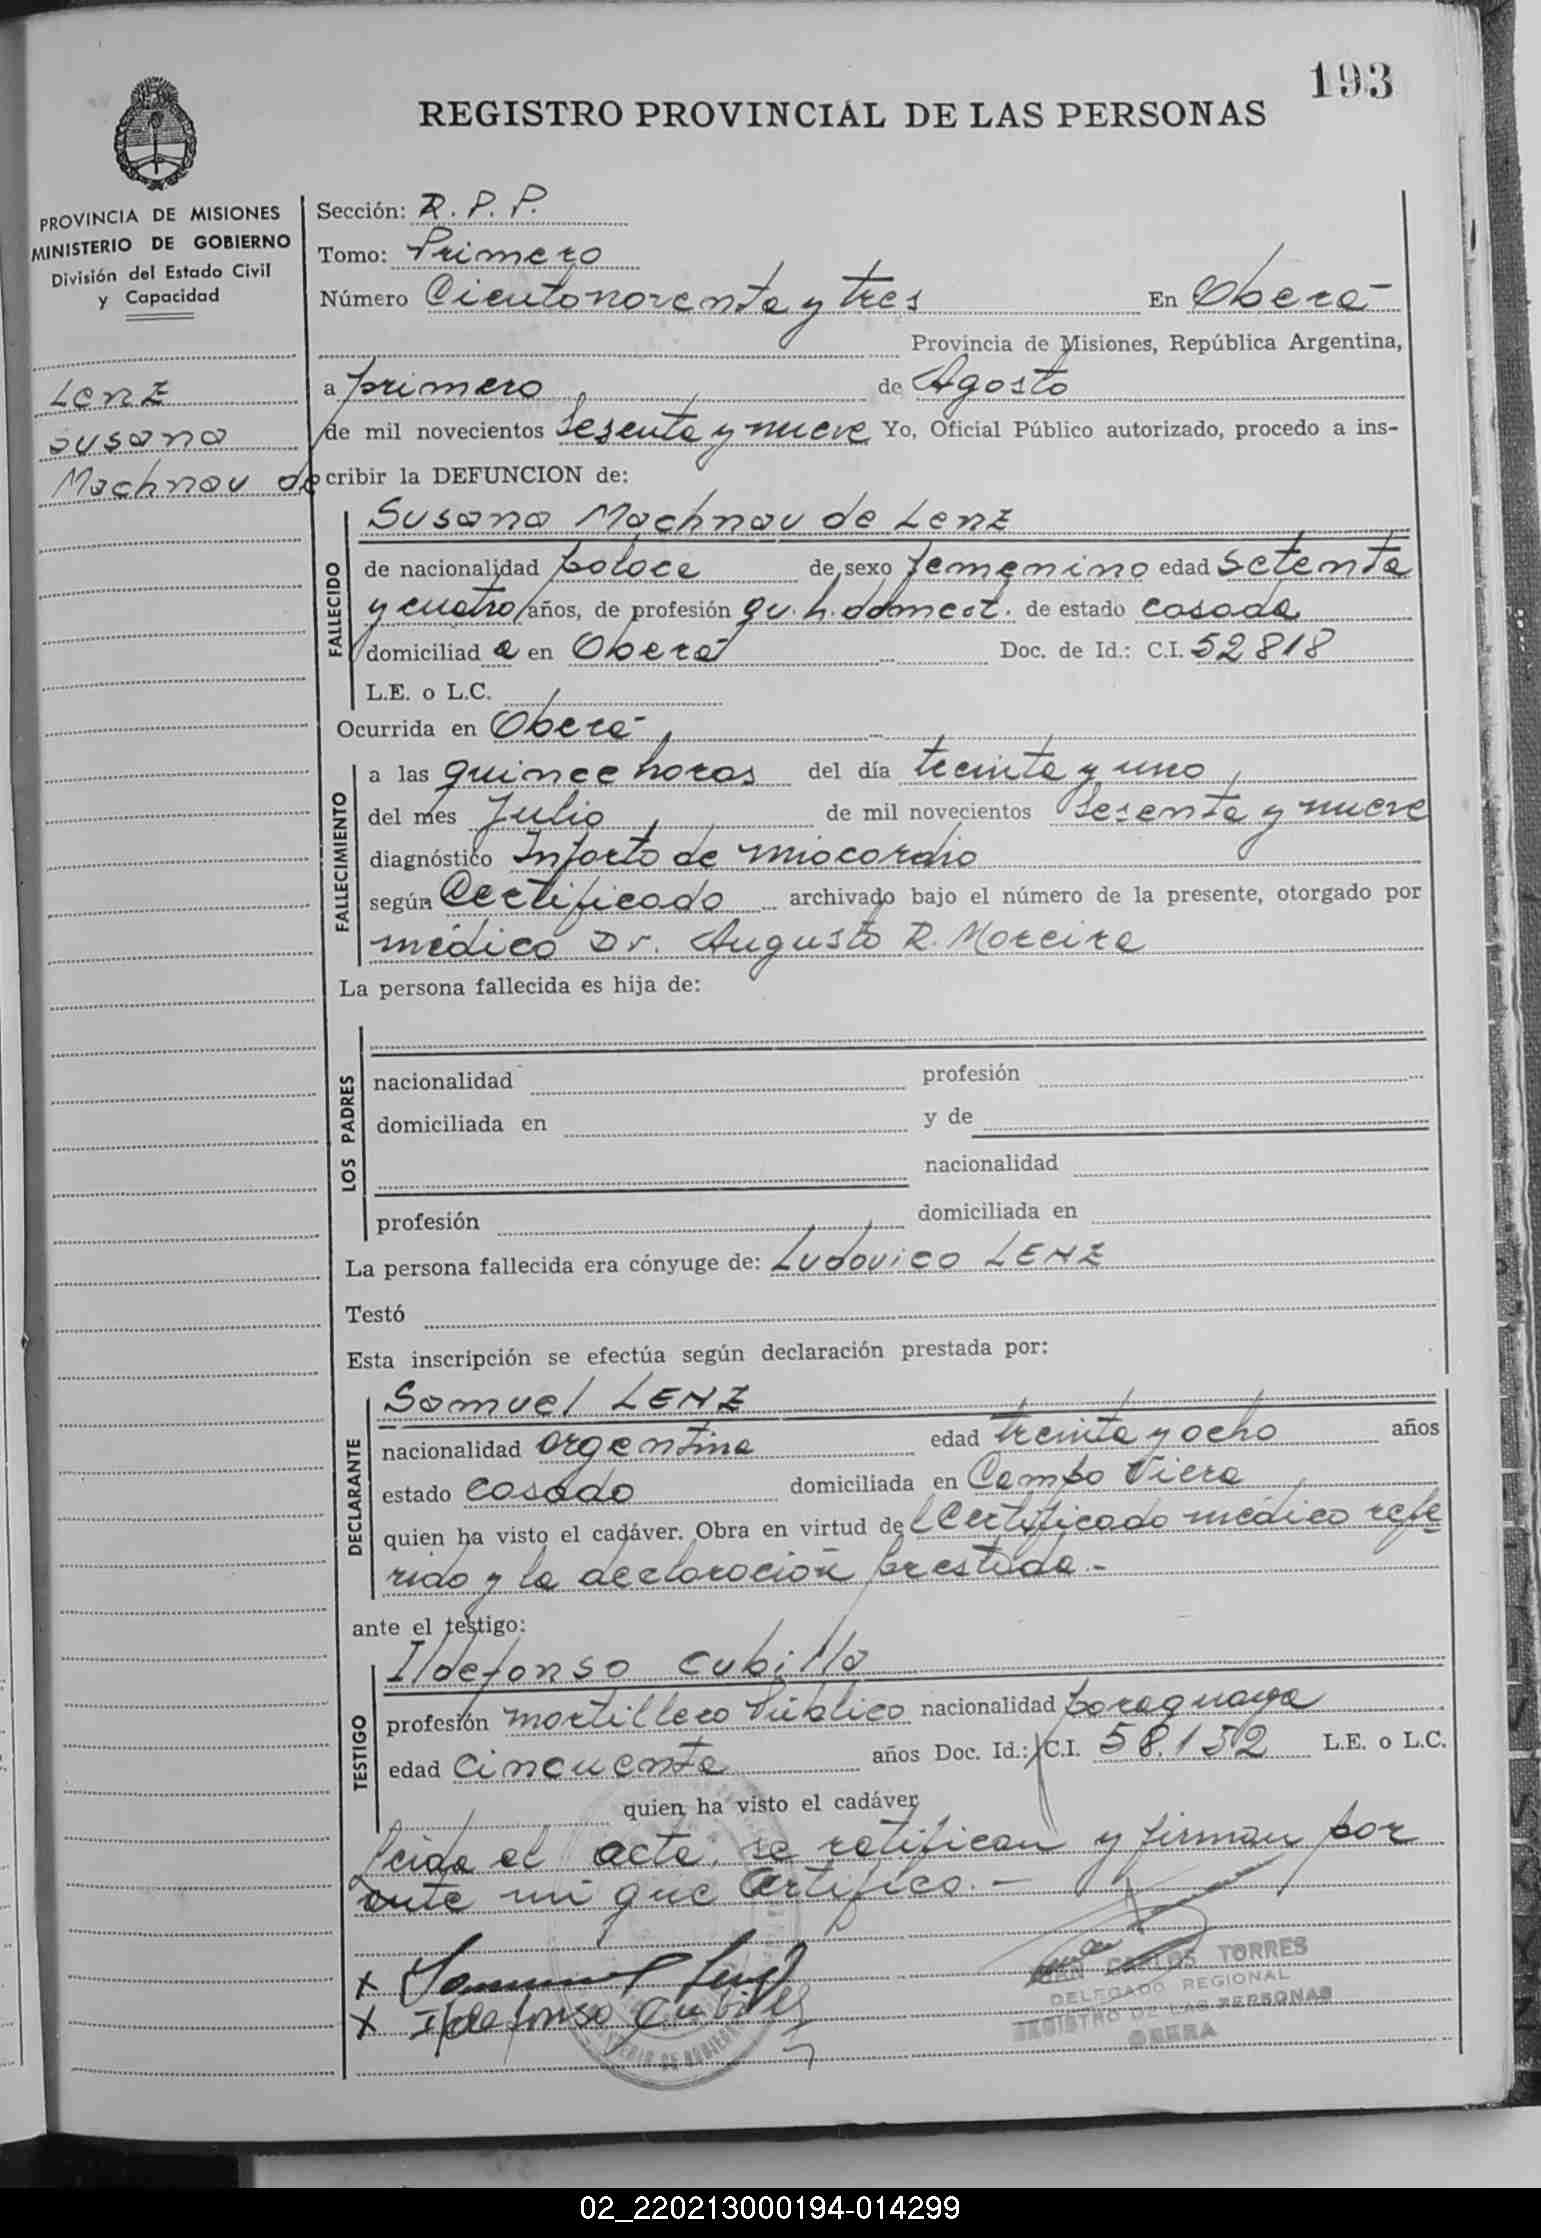 193
REGISTRO PROVINCIAL DE LAS PERSONAS
PROVINCIA DE MISIONES
MINISTERIO DE GOBIERNO
División del Estado Civil
y Capacidad
Lenz
Susana
Machnov de
Sección: R.P.P.
Tomo: Primero
Número Ciento noventa y tres En Oberá
Provincia de Misiones, República Argentina,
a primero de Agosto
de mil novecientos Sesenta y nueve Yo, Oficial Público autorizado, procedo a ins-
cribir la DEFUNCION de:
FALLECIDO
Susana Machnov de Lenz
de nacionalidad polaca de sexo femenino edad setenta
y cuatro años, de profesión qu. h. domest. de estado casada
domiciliad a en Oberá Doc. de Id.: C.I. 52818
L.E. o L.C.
Ocurrida en Oberá
FALLECIMIENTO
a las quince horas del día treinta y uno
del mes Julio de mil novecientos Sesenta y nueve
diagnóstico Infarto de miocardio
según Certificado archivado bajo el número de la presente, otorgado por
médico Dr. Augusto R. Moreira
La persona fallecida es hija de:
LOS PADRES
nacionalidad profesión
domiciliada en y de
nacionalidad
profesión domiciliada en
La persona fallecida era cónyuge de: Ludovico LENZ
Testó
Esta inscripción se efectúa según declaración prestada por:
DECLARANTE
Samuel LENZ
nacionalidad argentina edad treinta y ocho años
estado casado domiciliada en Campo Viera
quien ha visto el cadáver. Obra en virtud del Certificado médico refe
rido y la declaración prestada.-
ante el testigo:
TESTIGO
Ildefonso Cubilla
profesión martillero Público nacionalidad paraguaya
edad cincuenta años Doc. Id.: C.I. 58.152 L.E. o L.C.
quien ha visto el cadáver
leída el acta, se ratifican y firman por
ante mi que certifico.-
x Samuel Lenz
x Ildefonso Cubilla
JUAN CARLOS TORRES
DELEGADO REGIONAL
REGISTRO DE LAS PERSONAS
OBERA
02_220213000194-014299